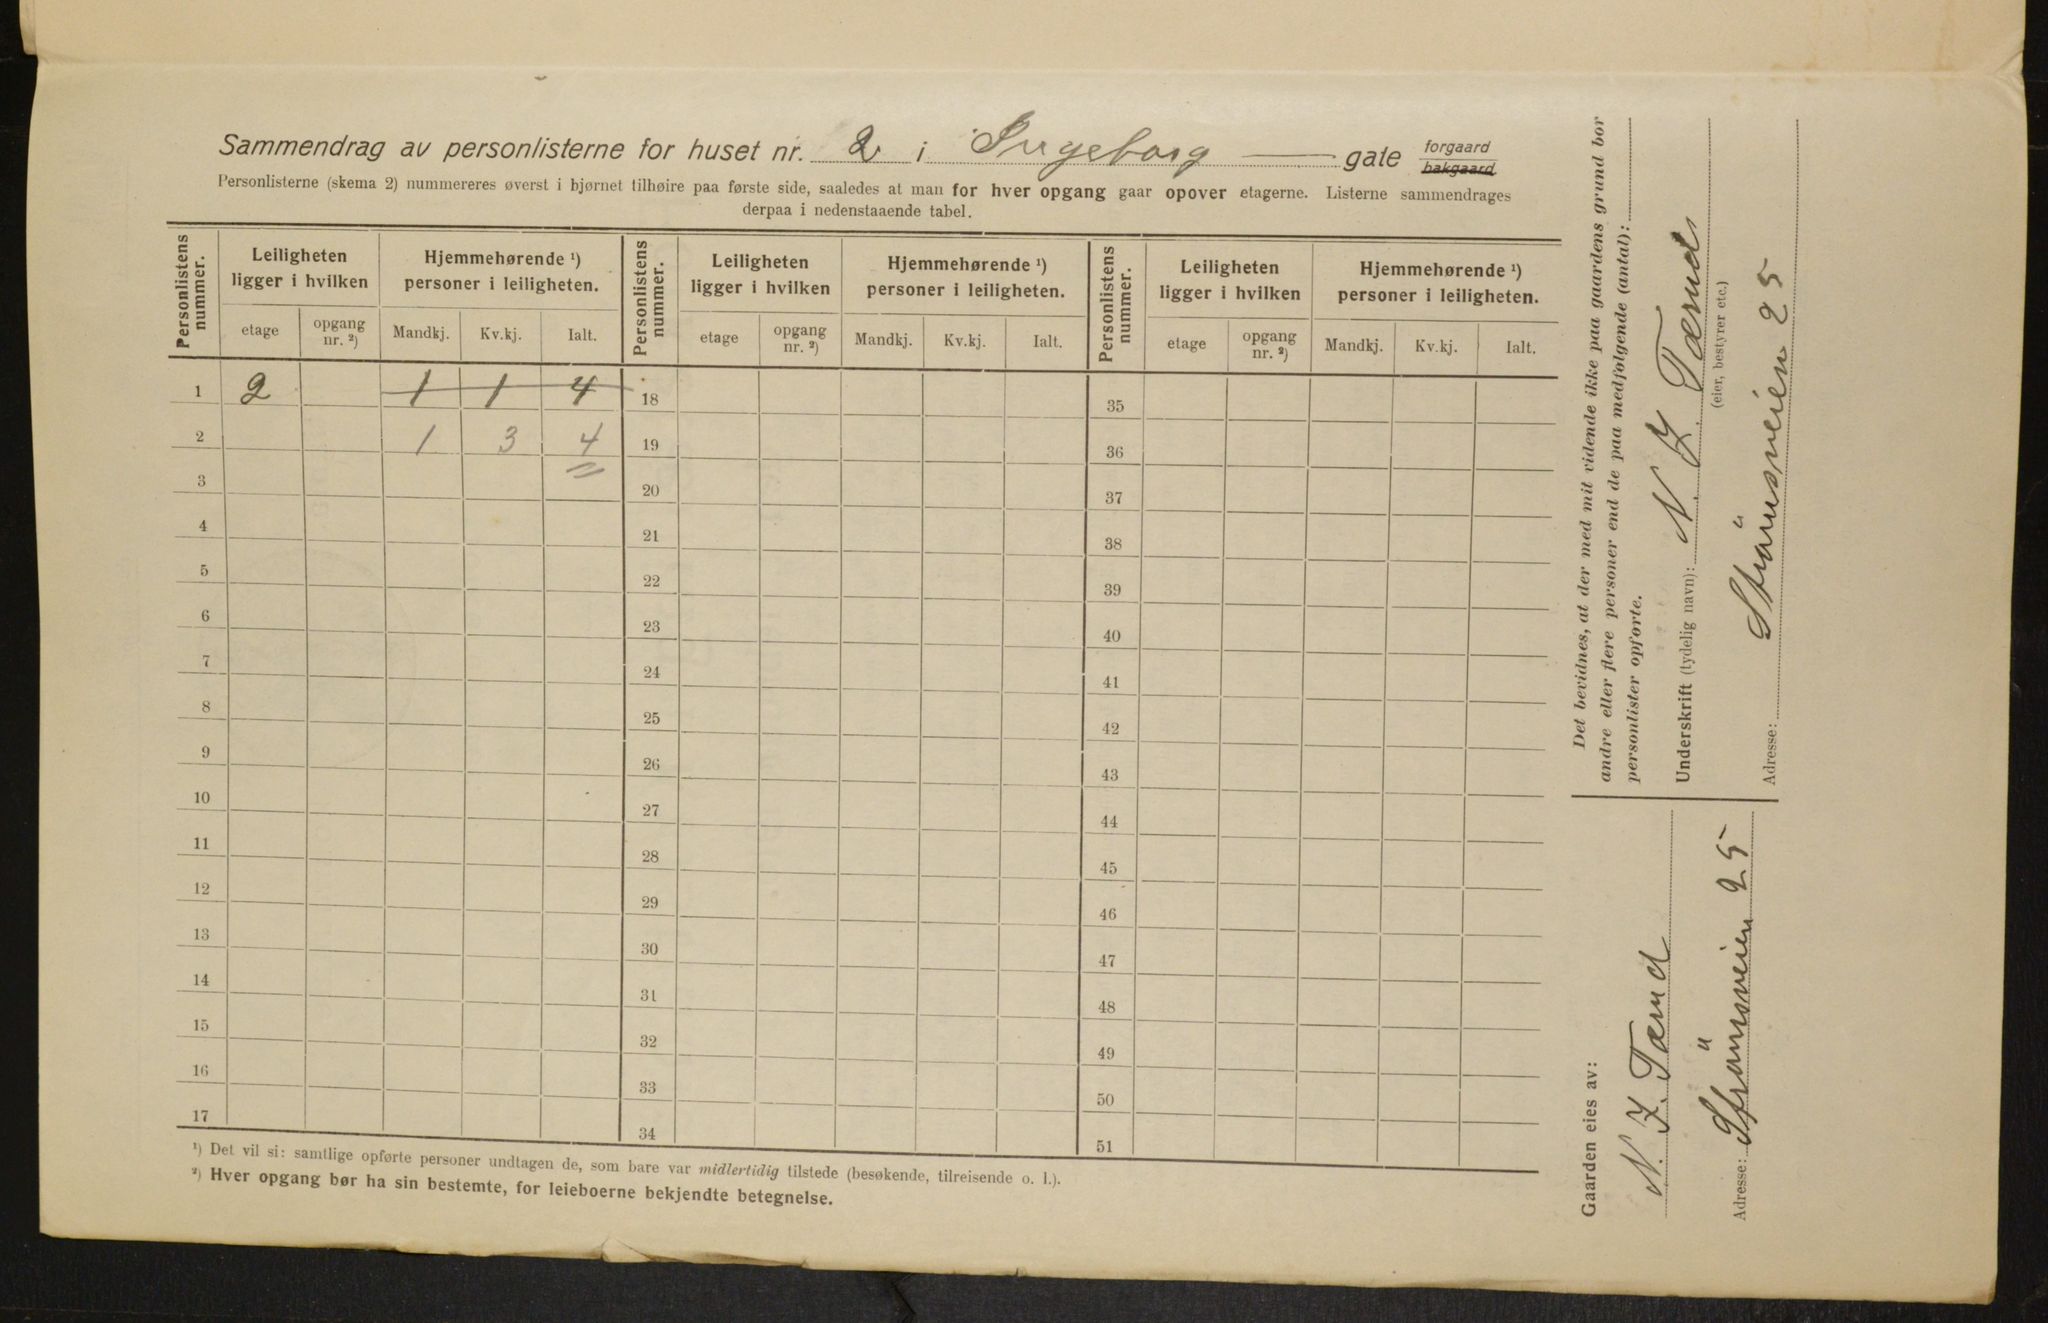 Sammendrag av personlisterne for huset nr. 2 i Ingeborg — gate forgaard
bakgaard
Personlisterne (skema 2) nummereres øverst i hjørnet tilhøire paa første side, saaledes at man for hver opgang gaar opover etagerne. Listerne sammendrages
derpaa i nedenstaaende tabel.
Personlistens nummer. Leiligheten ligger i hvilken Hjemmehørende ¹) personer i leiligheten. Personlistens nummer. Leiligheten ligger i hvilken Hjemmehørende ¹) personer i leiligheten. Personlistens nummer. Leiligheten ligger i hvilken Hjemmehørende ¹) personer i leiligheten.
etage opgang nr. ²) Mandkj. Kv.kj. Ialt. etage opgang nr. ²) Mandkj. Kv.kj. Ialt. etage opgang nr. ²) Mandkj. Kv.kj. Ialt.
1 2 1 1 4 18 35
2 1 3 4 19 36
3 20 37
4 21 38
5 22 39
6 23 40
7 24 41
8 25 42
9 26 43
10 27 44
11 28 45
12 29 46
13 30 47
14 31 48
15 32 49
16 33 50
17 34 51
¹) Det vil si: samtlige opførte personer undtagen de, som bare var midlertidig tilstede (besøkende, tilreisende o. l.).
²) Hver opgang bør ha sin bestemte, for leieboerne bekjendte betegnelse.
Det bevidnes, at der med mit vidende ikke paa gaardens grund bor
andre eller flere personer end de paa medfølgende (antal):
personlister opførte.
Underskrift (tydelig navn): N. Z. Tærud
(eier, bestyrer etc.)
Adresse: Strömsveien 25
Gaarden eies av:
N. Z. Tærud
Adresse: Strömsveien 25